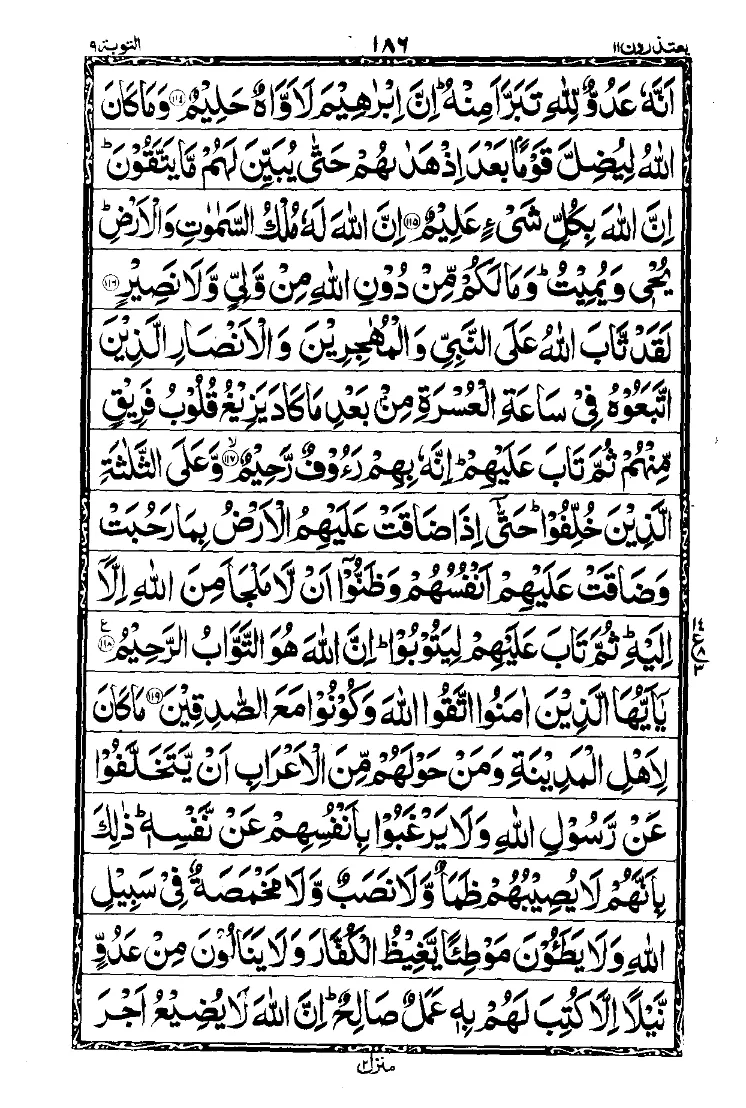 يعتذرون ١١ ١٨٦ التوبة ٩
اَنَّهٗ عَدُوٌّ لِّلّٰهِ تَبَرَّاَ مِنْهُ ؕ اِنَّ اِبْرٰهِيْمَ لَاَوَّاهٌ حَلِيْمٌ ﴿۱۱۴﴾ وَمَا كَانَ
اللّٰهُ لِيُضِلَّ قَوْمًۢا بَعْدَ اِذْ هَدٰىهُمْ حَتّٰى يُبَيِّنَ لَهُمْ مَّا يَتَّقُوْنَ ؕ
اِنَّ اللّٰهَ بِكُلِّ شَىْءٍ عَلِيْمٌ ﴿۱۱۵﴾ اِنَّ اللّٰهَ لَهٗ مُلْكُ السَّمٰوٰتِ وَالْاَرْضِ ؕ
يُحْىٖ وَيُمِيْتُ ؕ وَمَا لَكُمْ مِّنْ دُوْنِ اللّٰهِ مِنْ وَّلِىٍّ وَّلَا نَصِيْرٍ ﴿۱۱۶﴾
لَقَدْ تَّابَ اللّٰهُ عَلَى النَّبِىِّ وَالْمُهٰجِرِيْنَ وَالْاَنْصَارِ الَّذِيْنَ
اتَّبَعُوْهُ فِىْ سَاعَةِ الْعُسْرَةِ مِنْۢ بَعْدِ مَا كَادَ يَزِيْغُ قُلُوْبُ فَرِيْقٍ
مِّنْهُمْ ثُمَّ تَابَ عَلَيْهِمْ ؕ اِنَّهٗ بِهِمْ رَءُوْفٌ رَّحِيْمٌ ﴿۱۱۷﴾ۙ وَّعَلَى الثَّلٰثَةِ
الَّذِيْنَ خُلِّفُوْا ؕ حَتّٰۤى اِذَا ضَاقَتْ عَلَيْهِمُ الْاَرْضُ بِمَا رَحُبَتْ
وَضَاقَتْ عَلَيْهِمْ اَنْفُسُهُمْ وَظَنُّوْۤا اَنْ لَّا مَلْجَاَ مِنَ اللّٰهِ اِلَّاۤ
اِلَيْهِ ؕ ثُمَّ تَابَ عَلَيْهِمْ لِيَتُوْبُوْا ؕ اِنَّ اللّٰهَ هُوَ التَّوَّابُ الرَّحِيْمُ ﴿۱۱۸﴾ ع
يٰۤاَيُّهَا الَّذِيْنَ اٰمَنُوا اتَّقُوا اللّٰهَ وَكُوْنُوْا مَعَ الصّٰدِقِيْنَ ﴿۱۱۹﴾ مَا كَانَ
لِاَهْلِ الْمَدِيْنَةِ وَمَنْ حَوْلَهُمْ مِّنَ الْاَعْرَابِ اَنْ يَّتَخَلَّفُوْا
عَنْ رَّسُوْلِ اللّٰهِ وَلَا يَرْغَبُوْا بِاَنْفُسِهِمْ عَنْ نَّفْسِهٖ ؕ ذٰلِكَ
بِاَنَّهُمْ لَا يُصِيْبُهُمْ ظَمَاٌ وَّلَا نَصَبٌ وَّلَا مَخْمَصَةٌ فِىْ سَبِيْلِ
اللّٰهِ وَلَا يَطَئُوْنَ مَوْطِئًا يَّغِيْظُ الْكُفَّارَ وَلَا يَنَالُوْنَ مِنْ عَدُوٍّ
نَّيْلًا اِلَّا كُتِبَ لَهُمْ بِهٖ عَمَلٌ صَالِحٌ ؕ اِنَّ اللّٰهَ لَا يُضِيْعُ اَجْرَ
منزل ٢